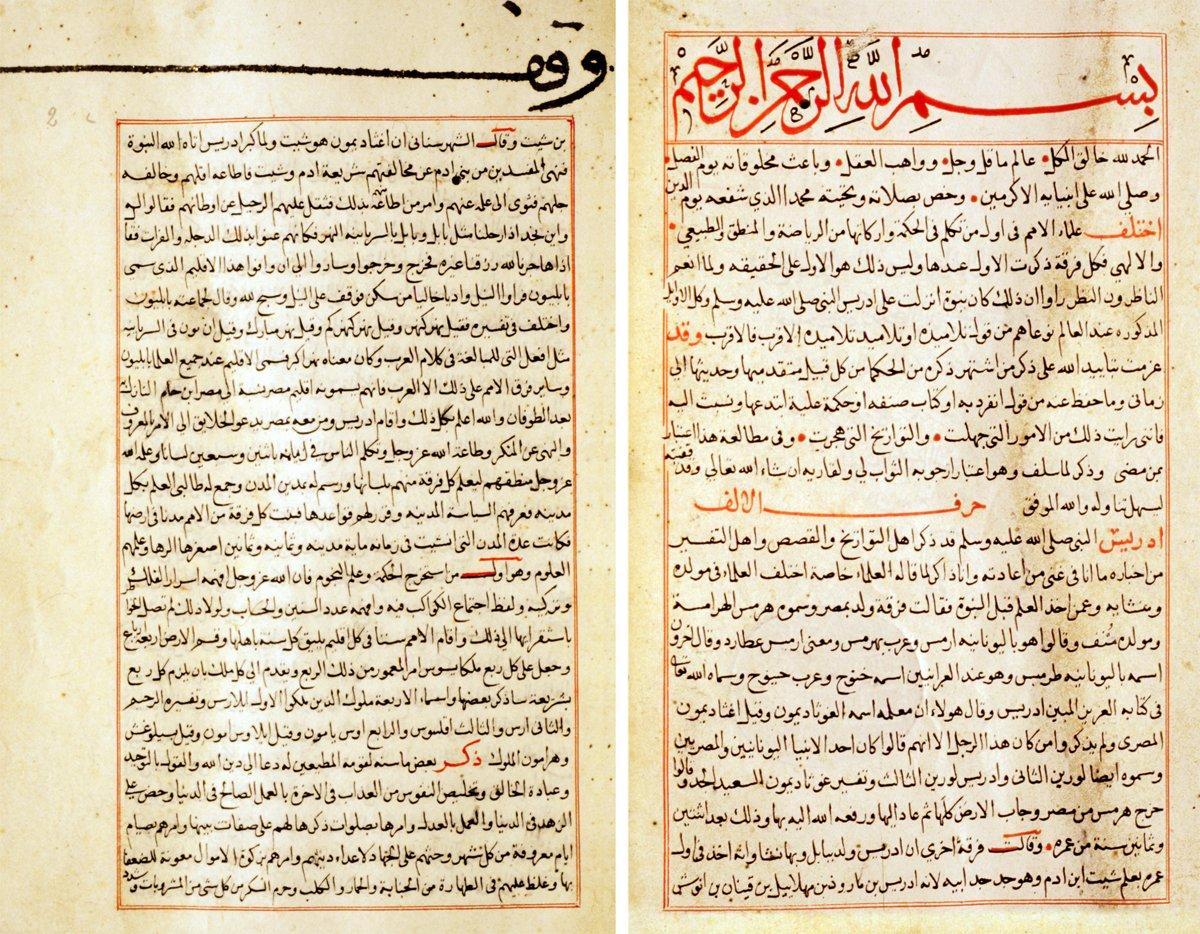 بسم الله الرحمن الرحيم
الحمد لله خالق الكل عالم ما قل وجل وواهب العقل وباعث مخلوقاته يوم الفصل
وصلى الله على انبيايه الاكرمين وخص بصلاته وتحيته محمدا الذي شفعه يوم الدين
اختلف علماء الامم فى اول من تكلم فى الحكمة واركانها من الرياضة والمنطق والطبيعي
والالهي فكل فرقة ذكرت الاول عندها وليس ذلك هو الاول على الحقيقه ولما انعم
الناظرون النظر راوا ان ذلك كان نبوة انزلت على ادريس النبى صلى الله عليه وسلم وكل الاوايل
المذكوره عند العالم نوعا هم من قول تلاميذه او تلاميذ تلاميذه الاقرب فالاقرب وقد
عزمت بتاييد الله على ذكر من اشتهر ذكره من الحكما من كل قبيل متقدميها وحديثها الى
زمانى وما حفظ عنه من قول انفرد به او كتاب صنفه او حكمة علية ابتدعها ونسبت اليه
فاننى رايت ذلك من الامور التى جهلت والتواريخ التى هجرت وفى مطالعة هذا اعتبار
بمن مضى وذكر لما سلف وهو اعتبار ارجو به الثواب لي ولقاريه ان شاء الله تعالى وقد قفيته
ليسهل تناوله والله الموفق حرف الالف
ادريس النبى صلى الله عليه وسلم قد ذكر اهل التواريخ والقصص واهل التفسير
من اخباره ما انا فى غنى من اعادته وانا ذاكر لما قاله العلماء خاصة اختلف العلماء فى مولده
ومنشايه وعمن اخذ العلم قبل النبوة فقالت فرقة ولد بمصر وسموه هرمس الهرامسة
ومولده بمنف وقالوا هو باليونانيه ارمس وعرب بهرمس ومعنى ارمس عطارد وقال اخرون
اسمه باليونانيه طرميس وهو عند العبرانيين اسمه خنوخ وعرب اخنوخ وسماه الله تعالى
فى كتابه العربي المبين ادريس وقال هولاء ان معلمه اسمه الغوثاديمون وقيل اغثاديمون
المصرى ولم يذكروا من كان هذا الرجل الا انهم قالوا كان احد الانبيا اليونانيين والمصريين
وسموه ايضا اورين الثانى وادريس اورين الثالث وتفسير غوثاديمون السعيد الجد وقالوا
خرج هرمس من مصر وجاب الارض كلها ثم عاد اليها ورفعه الله اليه بها وذلك بعد اثنين
وثمانين سنة من عمره وقالت فرقة اخرى ان ادريس ولد ببابل وبها نشا وانه اخذ فى اول
عمره بعلم شيث ابن ادم وهو جد جد ابيه لانه ادريس بن يارد بن مهلاييل بن قينان بن انوش
وقف
2
بن شيث وقال الشهرستانى ان اغثاديمون هو شيث ولما كبر ادريس اتاه الله النبوة
فنهى المفسدين من بنى ادم عن مخالفتهم شريعة ادم وشيث فاطاعه اقلهم وخالفه
جلهم فنوى الرحلة عنهم وامر من اطاعه منهم بذلك فثقل عليهم الرحيل عن اوطانهم فقالوا له
واين نجد اذا رحلنا مثل بابل وبابل بالسريانيه النهر فكانهم عنوا بذلك الدجله والفرات فقا
اذا هاجرنا لله رزقنا غيره فخرج وخرجوا وساروا الى ان وافوا هذا الاقليم الذى سمى
بابليون فراوا النيل وراوا واديا خاليا من ساكن فوقف على النيل وسبح الله وقال لجماعته بابليون
واختلف فى تفسيره فقيل نهر كنهركم وقيل نهر مبارك وقيل ان يون فى السريانيه
مثل افعل التى للمبالغة فى كلام العرب وكان معناه نهر اكبر فسمى الاقليم عند جميع العلما بابليون
وساير فرق الامم على ذلك الا العرب فانهم يسمونه اقليم مصر نسبة الى مصر ابن حام النازل
بعد الطوفان والله اعلم بكل ذلك واقام ادريس ومن معه بمصر يدعو الخلايق الى الامر بالمعروف
والنهى عن المنكر وطاعة الله عز وجل وتكلم الناس فى ايامه باثنين وسبعين لسانا وعلمه الله
عز وجل منطقهم ليعلم كل فرقة منهم بلسانها ورسم لهم تمدين المدن وجمع له طالبي العلم بكل
مدينه فعرفهم السياسة المدنيه وقرر لهم قواعدها فبنت كل فرقة من الامم مدنا فى ارضها
فكانت عدة المدن التى انشيت فى زمانه ماية مدينه وثمانيه وثمانين اصغرها الرها وعلمهم
العلوم وهو اول من استخرج الحكمة وعلم النجوم فان الله عز وجل افهمه اسرار الفلك
وتركيبه ونقط اجتماع الكواكب فيه وافهمه عدد السنين والحساب ولولا ذلك لم تصل الخواطر
باستقرايها الى ذلك واقام للامم سننا فى كل اقليم يليق كل سنه باهلها وقسم الارض اربعة ارباع
وجعل على كل ربع ملكا يسوس امر المعمور من ذلك الربع وتقدم الى كل ملك بان يلزم كل ربع
بشريعة ساذكر بعضها واسماء الاربعة ملوك الذين ملكوا الاول ايلاوس وتفسيره الرحيم
والثانى اوس والثالث اسقلبيوس والرابع اوس يامون وقيل ايلاوس امون وقيل بسيلوخس
وهو امون الملوك ذكر بعض ما سنه لقومه المطيعين له دعا الى دين الله والقول بالتوحيد
وعبادة الخالق وتخليص النفوس من العذاب فى الاخرة بالعمل الصالح فى الدنيا وحض على
الزهد فى الدنيا والعمل بالعدل وامرهم بصلوات ذكرها لهم على صفات بينها وامرهم بصيام
ايام معروفة من كل شهر وحثهم على الجهاد لاعداء دينهم وامرهم بزكوة الاموال معونة للضعفا
بها وغلظ عليهم فى الطهارة من الجنابة والحمار والكلب وحرم السكر من كل شي من المشروبات وشدد